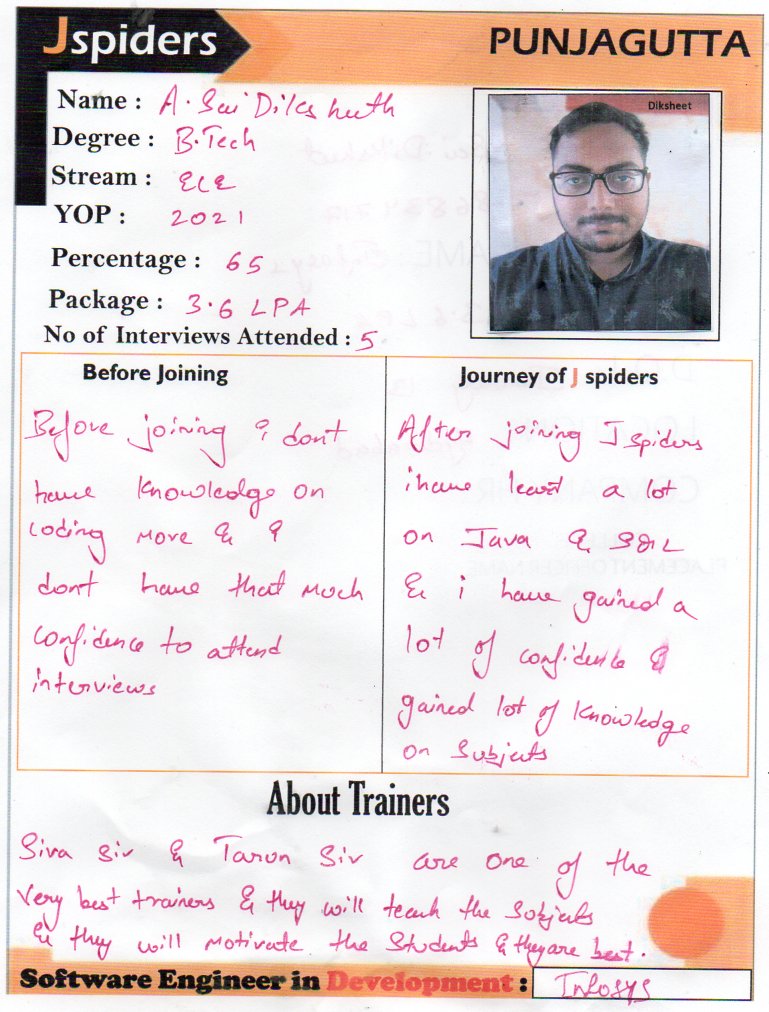 Jspiders
PUNJAGUTTA
Name : A. Sai Diksheeth
Diksheet
Degree : B.Tech
Stream : ECE
YOP : 2021
Percentage : 65
Package : 3.6 LPA
No of Interviews Attended : 5
Before Joining
Before joining i dont
have knowledge on
coding more & i
dont have that much
confidence to attend
interviews
Journey of J spiders
After joining J spiders
i have learnt a lot
on Java & SQL
& i have gained a
lot of confidence &
gained lot of knowledge
on subjects
About Trainers
Siva Sir & Tarun Sir are one of the
very best trainers & they will teach the subjects
& they will motivate the students & they are best.
Software Engineer in Development : Infosys